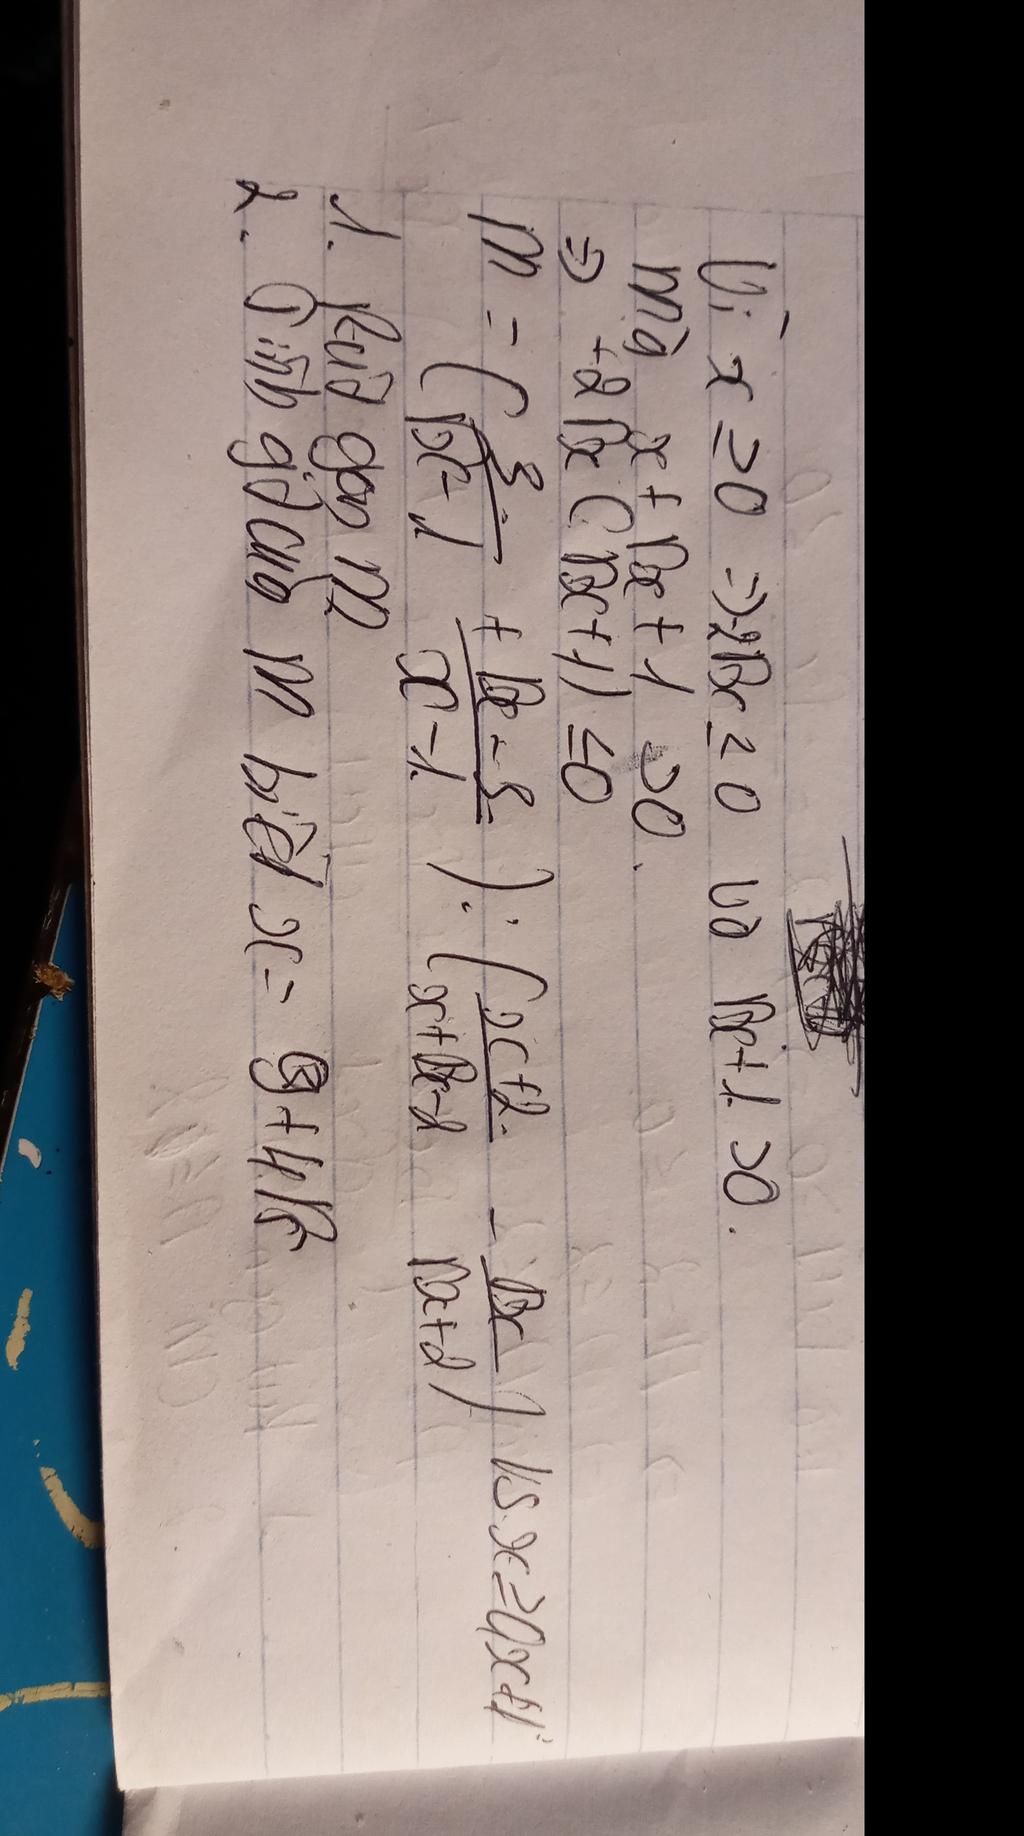 Vì x ≥ 0 ⇒ -2√x ≥ 0 và √x+1 > 0.
mà x + √x + 1 > 0.
⇒ +2√x (√x+1) ≤ 0
M = ( 3/(√x-1) + (√x-3)/(x-1) ) : ( (x+2)/(x+√x-2) - √x/(√x+2) ) Vs x ≥ 0, x ≠ 1
1. Rút gọn M
2. Tính giá của M biết x =